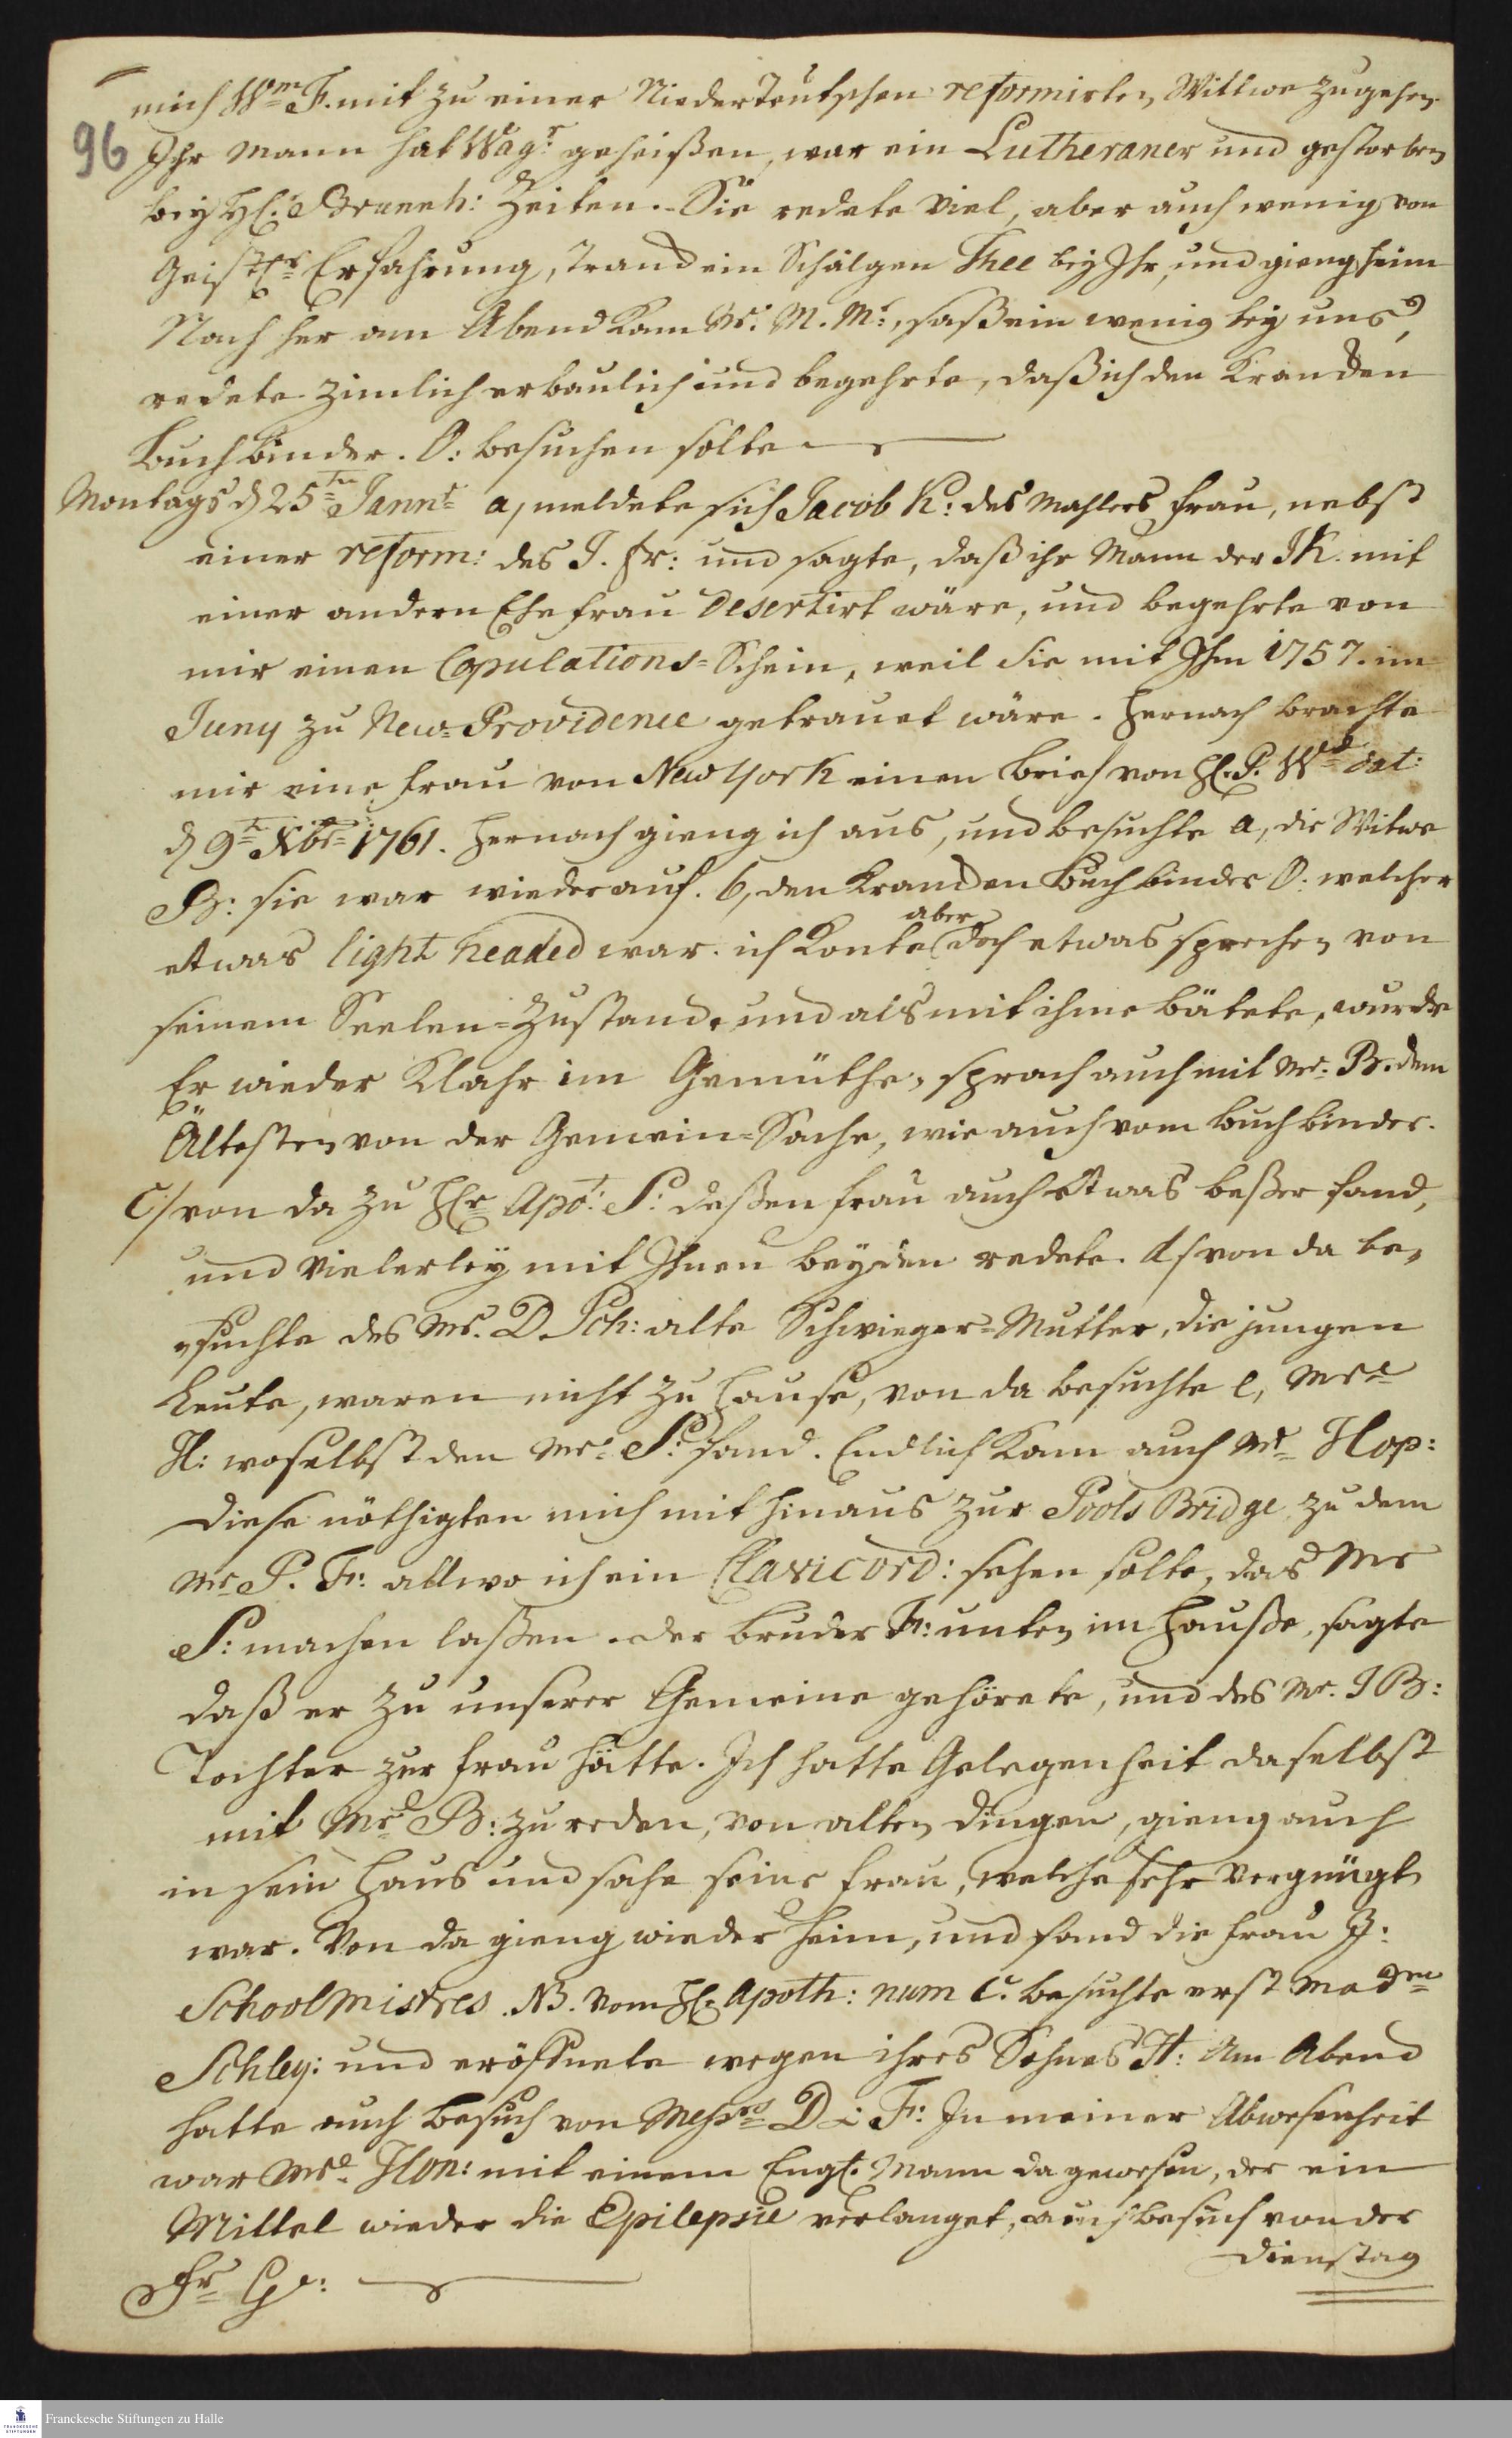 mich Wm F. mit zu einer Niederteutschen reformirten Wittwe zu gehen.
96
Ihr Mann hat Wagr: geheißen, war ein Lutheraner und gestorben
bey H. Brunnh: Zeiten. Sie redete viel, aber auch wenig von
Geistl: Erfahrung, tranck ein Schälgen Thee bey Ihr, und gieng heim
Nach her am Abend kam Mr. M. Mr:, saß ein wenig bey uns,
redete zimlich erbaulich und begehrte, daß ich den Krancken
Buchbinder. O: besuchen solte
Montags d 25ten Janr: a, meldete sich Jacob K: des Mahlers Frau, nebst
einer reform: des J. Fr: und sagte, daß ihr Mann der JK. mit
einer andern Ehe frau desertirt wäre, und begehrte von
mir einen Copulations=Schein, weil sie mit Ihm 1757. im
Juny zu New=Providence getrauet wäre. Hernach brachte
mir eine Frau von New York einen Brief von H. P. Wd dat:
d 9t Xbr 1761. Hernach gieng ich aus, und besuchte a, die Witwe
B: sie war wieder auf. b, den Krancken Buchbinder O: welcher
etwas light headed war. ich konte aber doch etwas sprechen von
seinem Seelen=Zustand, und als mit ihme bätete, wurde
Er wieder Klahr im Gemüthe, sprach auch mit Mr. B. dem
Ältesten von der Gemein=Sache, wie auch vom Buchbinder.
C/ von da zu Hr Apo: S: deßen Frau auch etwas beßer fand,
und vielerley mit Ihnen beyden redete. d/ von da be=
=suchte des Mr. D Sch: alte Schwieger=Mutter, die jungen
Leute, waren nicht zu Hause, von da besuchte e, Mrs
H: woselbst den Mr. S: fand. Endlich kam auch Mr Hop:
Diese nöthigten mich mit hinaus zur Pools Bridge zu dem
Mr P. Fr: allwo ich ein Clavicord: sehen solte, das Mr
S: machen laßen. der Bruder Fr: unten im Hauße, sagte
daß er zu unserer Gemeine gehörete, und des Mr. J B:
Tochter zur Frau hätte. Ich hatte Gelegenheit daselbst
mit Mr B: zu reden, von alten Dingen, gieng auch
in sein Haus und sahe seine Frau, welche sehr vergnügt
war. Von da gieng wieder heim, und fand die Frau Z:
School mistres. NB. vom H. Apoth: num C. besuchte erst Madm
Schley: und eröffnete wegen ihres Sohnes H: Am Abend
hatte auch Besuch von Messrs D i Fr: In meiner Abwesenheit
war Mr. Hon: mit einem Engl. Mann da gewesen, der ein
Mittel wieder die Epilepsie verlanget, auch besuch von der
Fr
Dienstag
Franckesche Stiftungen zu Halle